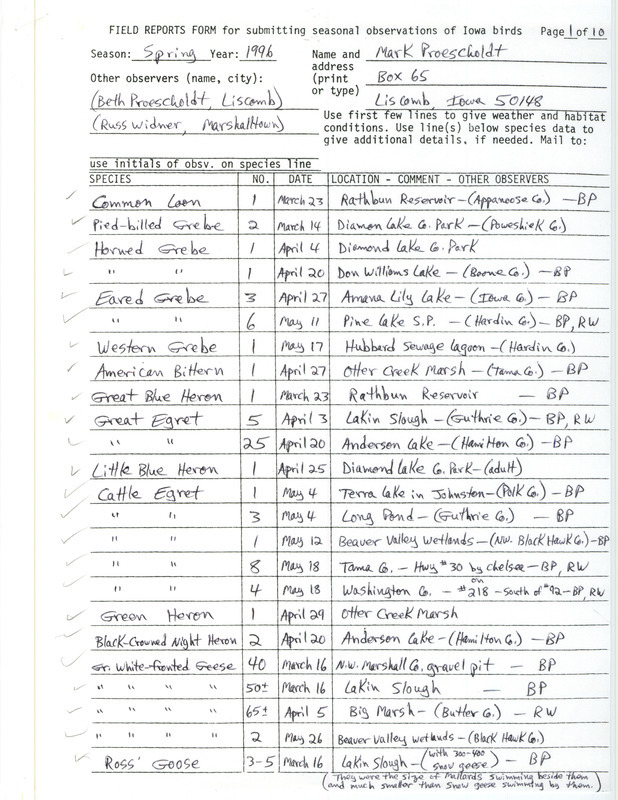 FIELD REPORTS FORM for submitting seasonal observations of Iowa birds Page 1 of 10
Season: Spring Year: 1996 Name and address (print or type) Mark Proescholdt
Box 65
Liscomb, Iowa 50148
Other observers (name, city):
(Beth Proescholdt, Liscomb)
(Russ Widner, Marshalltown)
Use first few lines to give weather and habitat
conditions. Use line(s) below species data to
give additional details, if needed. Mail to:
use initials of obsv. on species line
SPECIES NO. DATE LOCATION - COMMENT - OTHER OBSERVERS
Common Loon 1 March 23 Rathbun Reservoir - (Appanoose Co.) - BP
Pied-billed Grebe 2 March 14 Diamon Lake Co. Park - (Poweshiek Co.)
Horned Grebe 1 April 4 Diamond Lake Co. Park
" " 1 April 20 Don Williams Lake - (Boone Co.) - BP
Eared Grebe 3 April 27 Amana Lily Lake - (Iowa Co.) - BP
" " 6 May 11 Pine Lake S.P. - (Hardin Co.) - BP, RW
Western Grebe 1 May 17 Hubbard Sewage Lagoon - (Hardin Co.)
American Bittern 1 April 27 Otter Creek Marsh - (Tama Co.) - BP
Great Blue Heron 1 March 23 Rathbun Reservoir - BP
Great Egret 5 April 3 Lakin Slough - (Guthrie Co.) - BP, RW
" " 25 April 20 Anderson Lake - (Hamilton Co.) - BP
Little Blue Heron 1 April 25 Diamond Lake Co. Park - (adult)
Cattle Egret 1 May 4 Terra Lake in Johnston - (Polk Co.) - BP
" " 3 May 4 Long Pond - (Guthrie Co.) - BP
" " 1 May 12 Beaver Valley Wetlands - (N.W. Black Hawk Co.) - BP
" " 8 May 18 Tama Co. - Hwy #30 by Chelsea - BP, RW
" " 4 May 18 Washington Co. - on #218 - South of #92 - BP, RW
Green Heron 1 April 29 Otter Creek Marsh
Black-Crowned Night Heron 2 April 20 Anderson Lake - (Hamilton Co.) - BP
Gr. White-fronted Geese 40 March 16 N.W. Marshall Co. gravel pit - BP
" " " " 50± March 16 Lakin Slough - BP
" " " " 65± April 5 Big Marsh - (Butler Co.) - RW
" " " " 2 May 26 Beaver Valley Wetlands - (Black Hawk Co.)
Ross' Goose 3-5 March 16 Lakin Slough - (with 300-400 snow geese) - BP
(They were the size of Mallards swimming beside them
and much smaller than Snow geese swimming by them.)